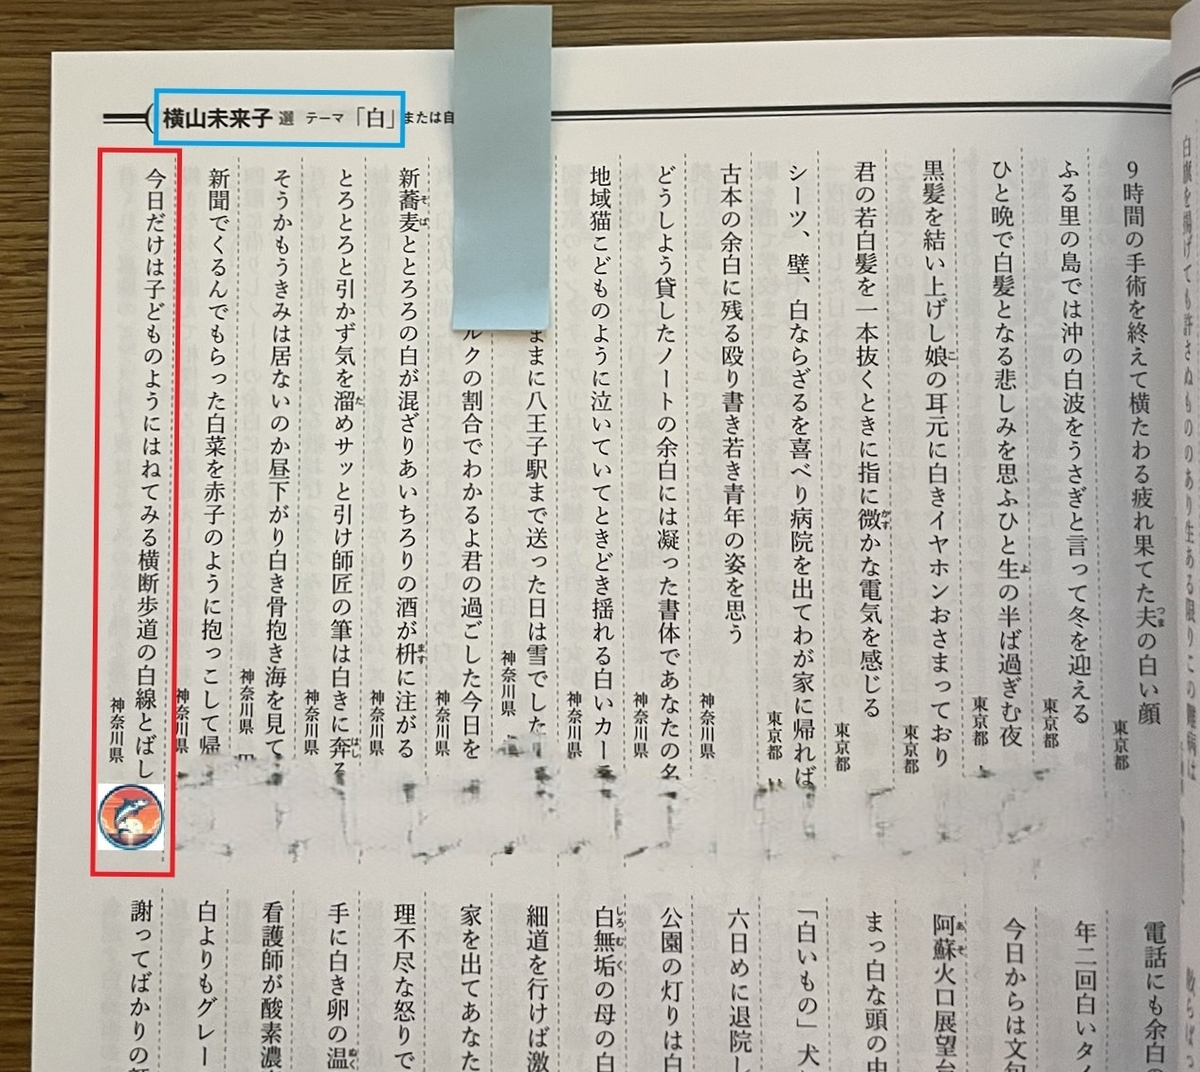 横山未来子 選 テーマ「白」または自
9時間の手術を終えて横たわる疲れ果てた夫の白い顔
つま
東京都
ふる里の島では沖の白波をうさぎと言って冬を迎える
東京都
ひと晩で白髪となる悲しみを思ふひと生の半ば過ぎむ夜
よ
東京都
黒髪を結い上げし娘の耳元に白きイヤホンおさまっており
こ
東京都
君の若白髪を一本抜くときに指に微かな電気を感じる
かす
東京都
シーツ、壁、白ならざるを喜べり病院を出てわが家に帰れば
東京都
古本の余白に残る殴り書き若き青年の姿を思う
神奈川県
どうしよう貸したノートの余白には凝った書体であなたの名
神奈川県
地域猫こどものように泣いていてときどき揺れる白いカー
神奈川県
ままに八王子駅まで送った日は雪でした
神奈川県
ルクの割合でわかるよ君の過ごした今日を
神奈川県
新蕎麦ととろろの白が混ざりあいちろりの酒が枡に注がる
そば
ます
神奈川県
とろとろと引かず気を溜めサッと引け師匠の筆は白きに奔る
だ
はし
神奈川県
そうかもうきみは居ないのか昼下がり白き骨抱き海を見て
神奈川県
新聞でくるんでもらった白菜を赤子のように抱っこして帰
神奈川県
今日だけは子どものようにはねてみる横断歩道の白線とばし
神奈川県
電話にも余白の
年二回白いタイ
今日からは文句
阿蘇火口展望台
あそ
まっ白な頭の中
「白いもの」犬
六日めに退院し
公園の灯りは白
白無垢の母の白
しろむく
細道を行けば激
家を出てあなた
理不尽な怒りで
手に白き卵の温
ぬく
看護師が酸素濃
白よりもグレー
謝ってばかりの
白旗を揚げても許さぬもののあり生ある限りこの